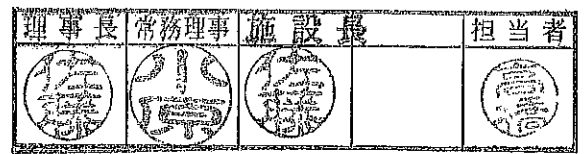 理事長 常務理事 施設長 担当者
佐藤 小原 佐藤 高橋